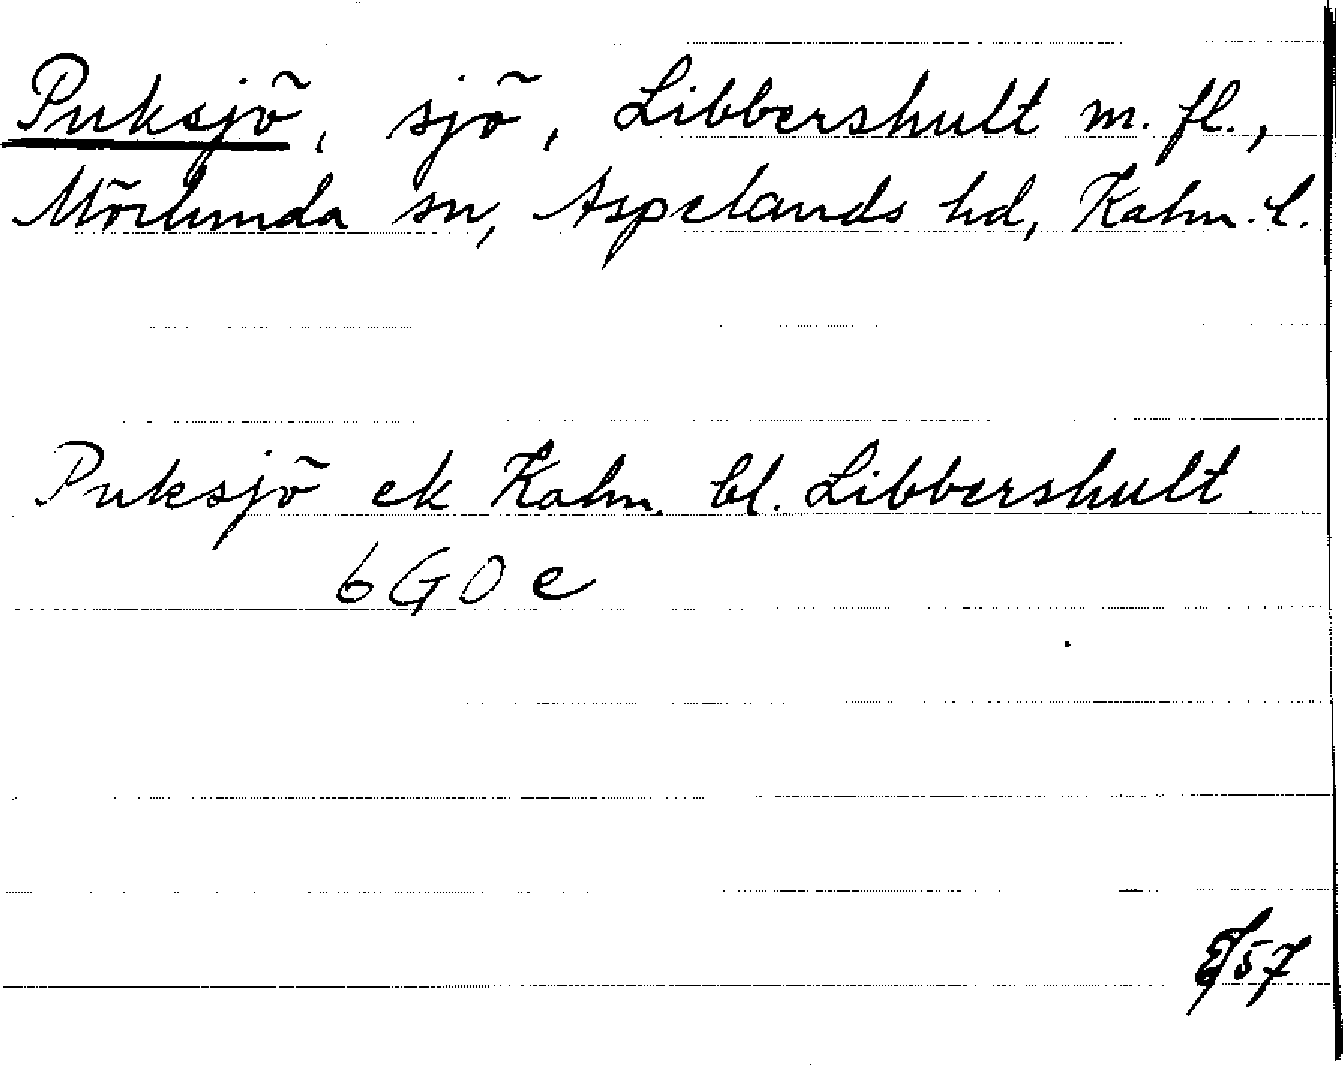 Puksjö, sjö, Libbershult m. fl.,
Mörlunda sn, Aspelands hd, Kalm. l.
Puksjö ek Kalm. bl. Libbershult
6G0e
57